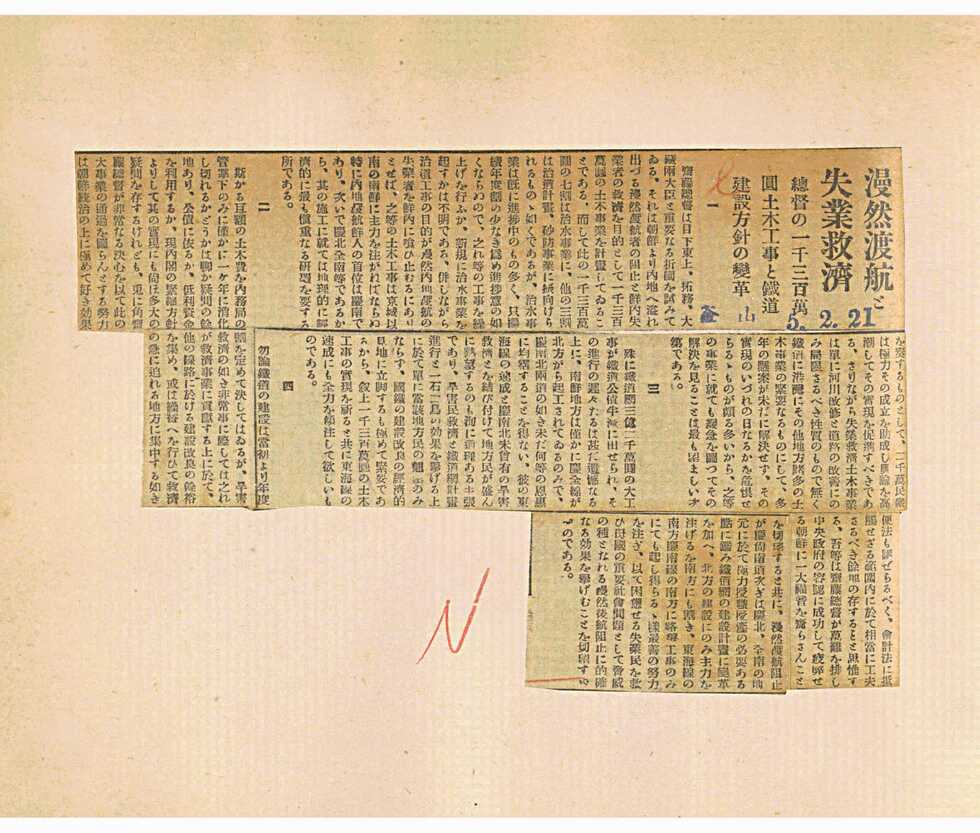 漫然渡航と
失業救濟
總督の一千三百萬
圓土木工事と鐵道
建設方針の變革
釜山
5. 2. 21
一
齋藤總督は目下東上、拓務、大
藏兩大臣と重要なる折衝を試みて
ゐる、それは朝鮮より内地へ溢れ
出づる漫然渡航者の阻止と鮮内失
業者の救濟を目的として一千三百
萬圓の土木事業を計畫してゐるこ
とである、而して此の一千三百萬
圓の七割は治水事業に、他の三割
は治道計畫、砂防事業に振向けら
れるものゝ如くであるが、治水事
業は既に進捗中のもの多く、只繼
續年度割の少なき爲め進捗意の如
くならぬので、之れ等の工事を繰
上げを行ふか、新規に治水事業を
起すかは不明である、併しながら
治道工事の目的が漫然内地渡航の
失業者を鮮内に喰ひ止むるにあり
とせば、之等の土木工事は京城以
南の南鮮に主力を注がねばならぬ
特に内地渡航鮮人の首位は慶南で
あり、次いで慶北全南等であるか
ら、其の施工に就ては地理的に經
濟的に最も愼重なる研究を要する
所である。
二
斯かる巨額の土木費を内務局の
管掌下のみに僅かに一ケ年に消化
し切れるかどうかは聊か疑問の餘
地あり、公債に依るか、低利資金
を利用するか、現内閣の緊縮方針
よりして其の實現にも尚ほ多大の
疑問を存するけれども、兎に角齋
藤總督が非常なる決心を以て此の
大事業の通過を圖らんとする努力
は朝鮮統治の上に極めて好き效果
を齎するものとして、二千萬民衆
は極力その成立を助成し輿論を高
潮してその實現を促進すべきであ
る、さりながら失業救濟土木事業
は單に河川改修と道路の改善にの
み局限さるべき性質のもので無く
鐵道に港灣にその他地方賭多の土
木事業の緊要なるものにして、多
年の懸案が未だに解決せず、その
實現のいづれの日なるかを危惧せ
らるゝものが頗る多いから、之等
の事業に就ても緩急を圖つてその
解決を見ることは最も望ましい次
第である。
三
殊に鐵道網三億二千萬圓の大工
事が鐵道公債牛減に世せられ、そ
の進行の遲々たるは甚だ遺憾なる
上に、南鮮地方は僅かに慶全線が
北方から起工されてゐるのみで、
慶南北兩道の如き未だ何等の恩惠
に均霑することを得ない、彼の東
海線の速成と慶南北未曾有の旱害
救濟とを結び付けて地方民が盛ん
に熱望するのも洵に道理ある主張
であり、旱害民救濟と鐵道網計畫
進行と一石二鳥の效果を擧げる上
に於て單に當該地方民の翹望のみ
ならず、國鐵の建設改良の經濟的
見地に立脚するも極めて緊要であ
るから、叙上一千三百萬圓の土木
工事の實現を祈ると共に東海線の
速成にも全力を傾注して欲しいも
のである。
四
勿論鐵道の建設は當初より年度
割を定めて決してはゐるが、旱害
救濟の如き非常事に際しては之れ
が救濟事業に貢獻する上に於て、
他の線路に於ける建設改良の餘裕
を集め、或は繰替へを行ひて救濟
の急に追れる地方に集中する如き
便法も講ぜらるべく、會計法に抵
觸せざる範圍内に於て相當に工夫
さるべき餘地の存すると思惟す
る、吾等は齋藤總督が萬難を排し
中央政府の容認に成功して疲弊せ
る朝鮮に一大福音を齎らさんこと
を切望すると共に、漫然渡航阻止
が慶尚南道次ぎは慶北、全南の地
元に於て極力授職授産の必要ある
點に鑑み鐵道網の建設計畫に變革
を加へ、北方の建設にのみ主力を
注げるを南方にも割き、東海線の
南方慶南線の南方に略尋工事のみ
にても起し得らるゝ樣最善の努力
を注ぎ、以て困憊せる失業民を救
ひ母國の重要社會問題として脅威
の種となれる漫然渡航阻止に的確
なる效果を擧げむことを切望する
ものである。